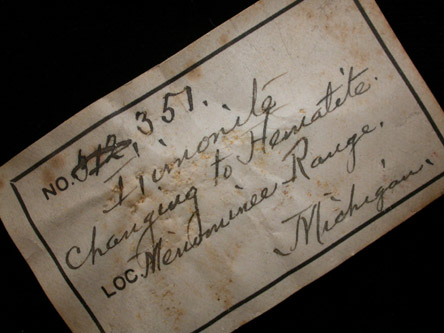 NO. 612, 351.
Limonite
Changing to Hematite.
LOC. Menominee Range,
Michigan.